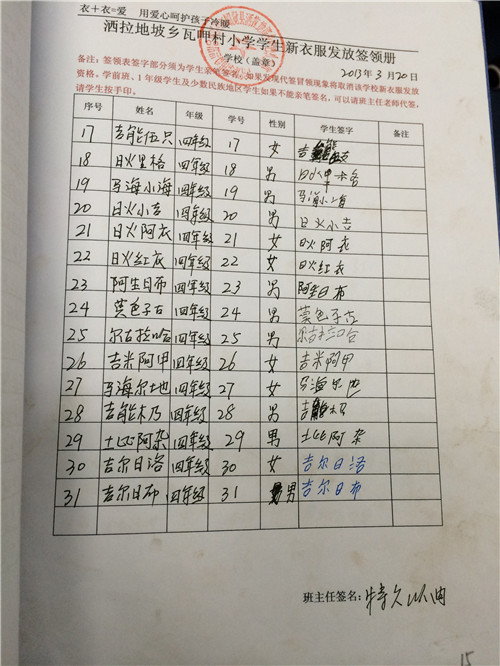 衣+衣=爱 用爱心呵护孩子冷暖
洒拉地坡乡瓦呷村小学学生新衣服发放签领册
学校(盖章) 2013年3月20日
备注:签领表签字部分须为学生亲笔签名,如果发现代签冒领现象将取消该学校新衣服发放
资格。学前班、1年级学生及少数民族地区学生如果不能亲笔签名,可以请班主任老师代签,
请学生按手印。
序号 姓名 年级 学号 性别 学生签字 备注
17 吉能伍只 四年级 17 女
18 日火里格 四年级 18 男
19 马海小海 四年级 19 男 马海小海
20 日火小吉 四年级 20 男 日火小吉
21 日火阿衣 四年级 21 女 日火阿衣
22 日火红衣 四年级 22 女 日火红衣
23 阿生日布 四年级 23 男 阿生日布
24 莫色子古 四年级 24 男 莫色子古
25 尔古拉哈 四年级 25 男
26 吉米阿甲 四年级 26 女 吉米阿甲
27 马海尔地 四年级 27 女 马海尔地
28 吉能木乃 四年级 28 男 吉能木乃
29 土比阿杂 四年级 29 男 土比阿杂
30 吉尔日洛 四年级 30 女 吉尔日洛
31 吉尔日布 四年级 31 男 吉尔日布
班主任签名:
15